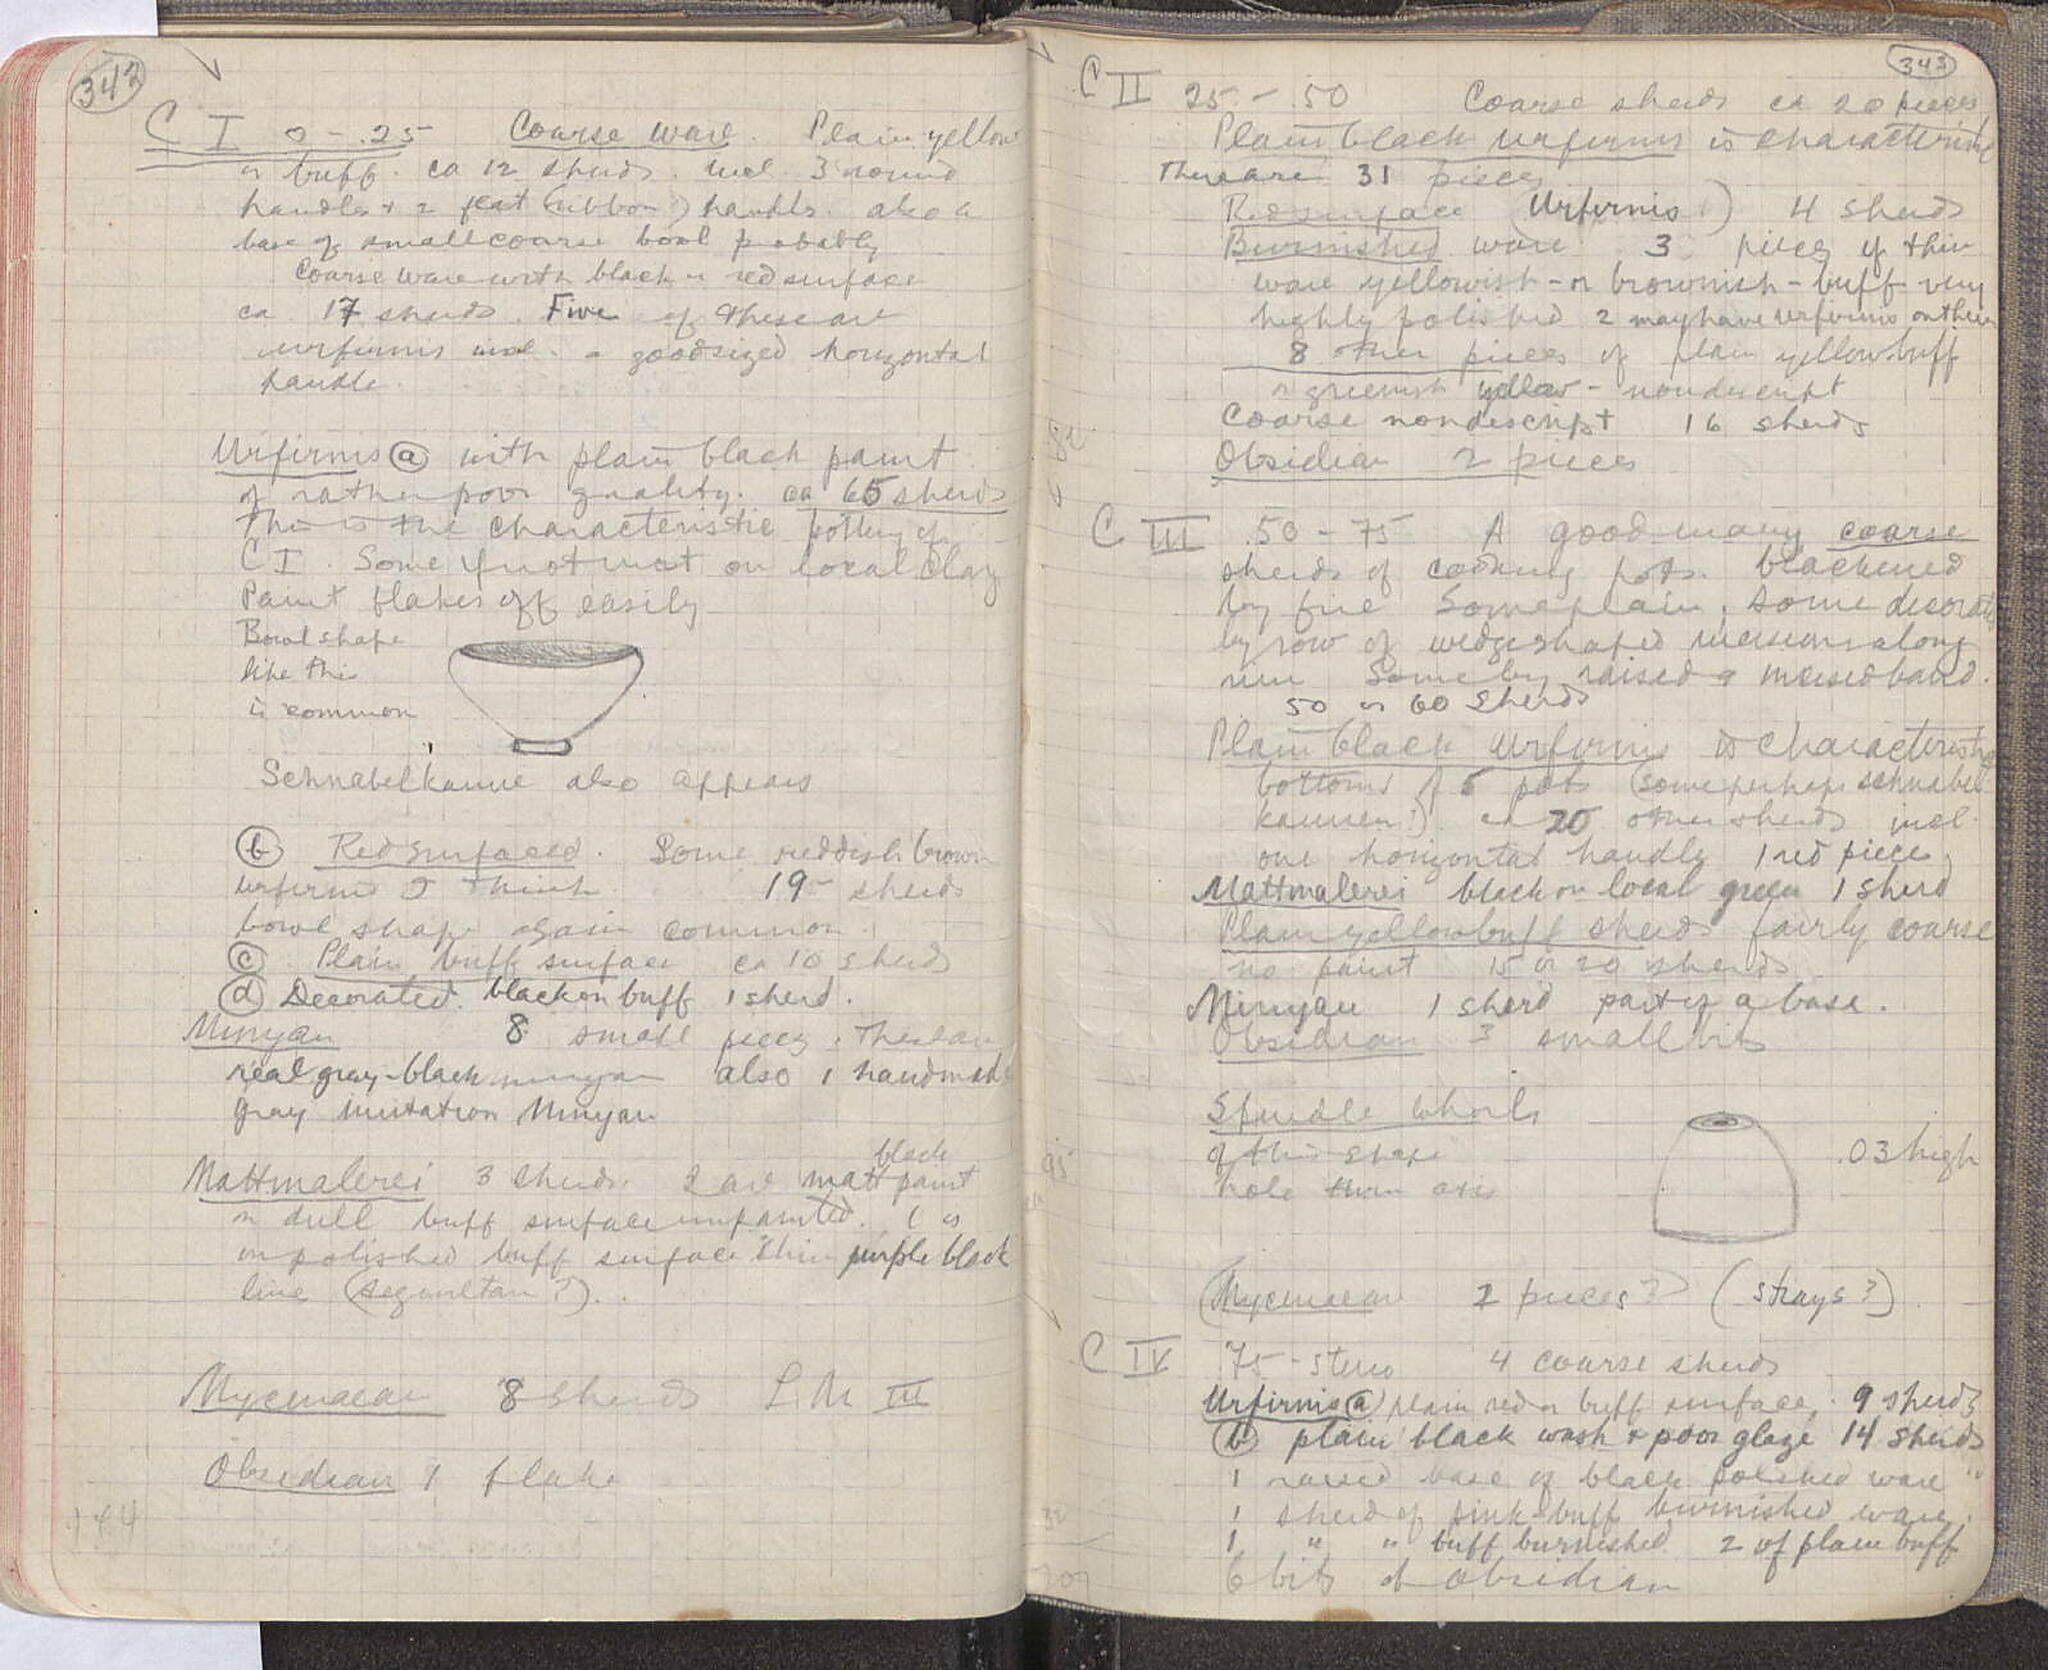 342
C I 0 - .25 Coarse ware. Plain yellow
or buff. ca 12 sherds. incl. 3 round
handles + 2 flat (ribbon) handles. also a
base of small coarse bowl probably
Coarse ware with black or red surface
ca 17 sherds. Five of these are
urfirnis incl. a good sized horizontal
handle.
Urfirnis (a) with plain black paint
of rather poor quality. ca 65 sherds
This is the characteristic pottery of
C I. Some if not most on local clay
Paint flakes off easily
Bowl shape
like this
is common
Schnabelkanne also appears
(b) Red surfaced. Some reddish brown
urfirnis I think 19 sherds
bowl shape again common.
(c) Plain buff surface ca 10 sherds
(d) Decorated. black on buff 1 sherd.
Minyan 8 small pieces. These are
real gray-black minyan also 1 handmade
gray imitation Minyan
black
Mattmalerei 3 sherds. 2 are matt paint
on dull buff surface unpainted. 1 is
on polished buff surface thin purple black
line (Aeginetan?).
Mycenaean 8 sherds L.M III
Obsidian 1 flake
144
343
C II 25 - .50 Coarse sherds ca 20 pieces
Plain black urfirnis is characteristic
There are 31 pieces
Red surface (Urfirnis) 4 sherds
Burnished ware 3 pieces of thin
ware yellowish - or brownish - buff very
highly polished 2 may have urfirnis on them
8 other pieces of plain yellow buff
or greenish yellow - nondescript
Coarse nondescript 16 sherds
Obsidian 2 pieces
C III .50 - 75 A good many coarse
sherds of cooking pots. blackened
by fire Some plain, some decorated
by row of wedge shaped incisions along
rim Some by raised & incised band.
50 or 60 sherds
Plain black urfirnis is characteristic
bottoms of 5 pots (some perhaps schnabel
kannen?) ca 20 other sherds incl.
one horizontal handle 1 red piece
Mattmalerei black on local green 1 sherd
Plain yellow buff sherds fairly coarse
no paint 15 or 20 sherds
Minyan 1 sherd part of a base.
Obsidian 3 small bits
Spindle whorls
of this shape .03 high
hole thru axis
(Mycenaean 2 pieces?) (strays?)
C IV .75 - stereo 4 coarse sherds
Urfirnis (a) plain red or buff surface, 9 sherds
(b) plain black wash & poor glaze 14 sherds
1 raised base of black polished ware
1 sherd of pink-buff burnished ware.
1 " " buff burnished 2 of plain buff
6 bits of obsidian